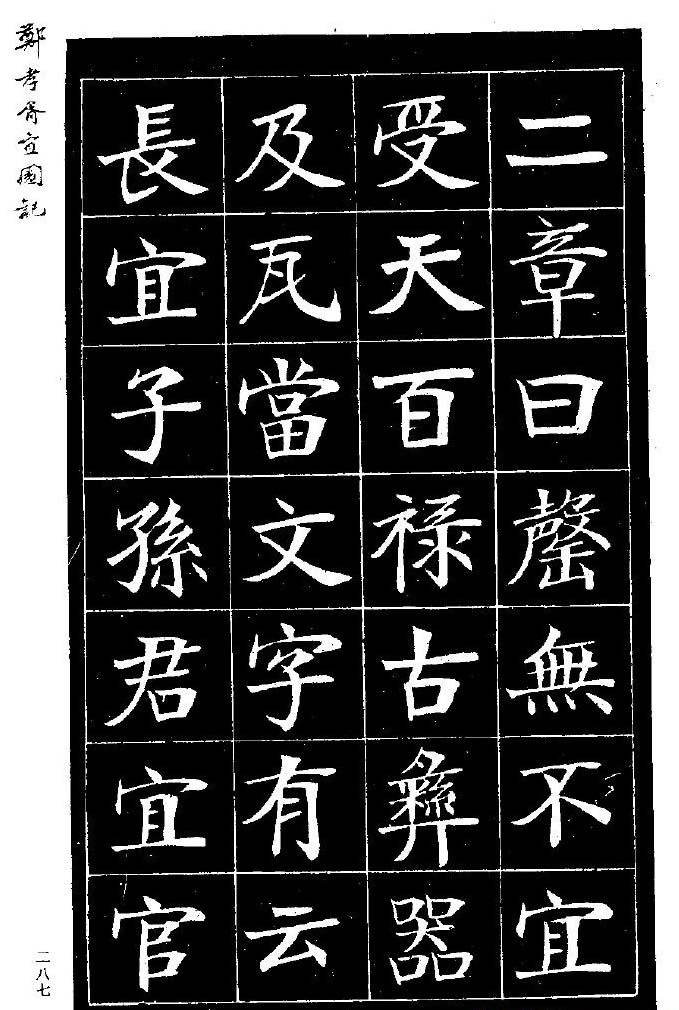 二章曰罄無不宜
受天百祿古彝器
及瓦當文字有云
長宜子孫君宜官
鄭孝胥宜園記
二八七